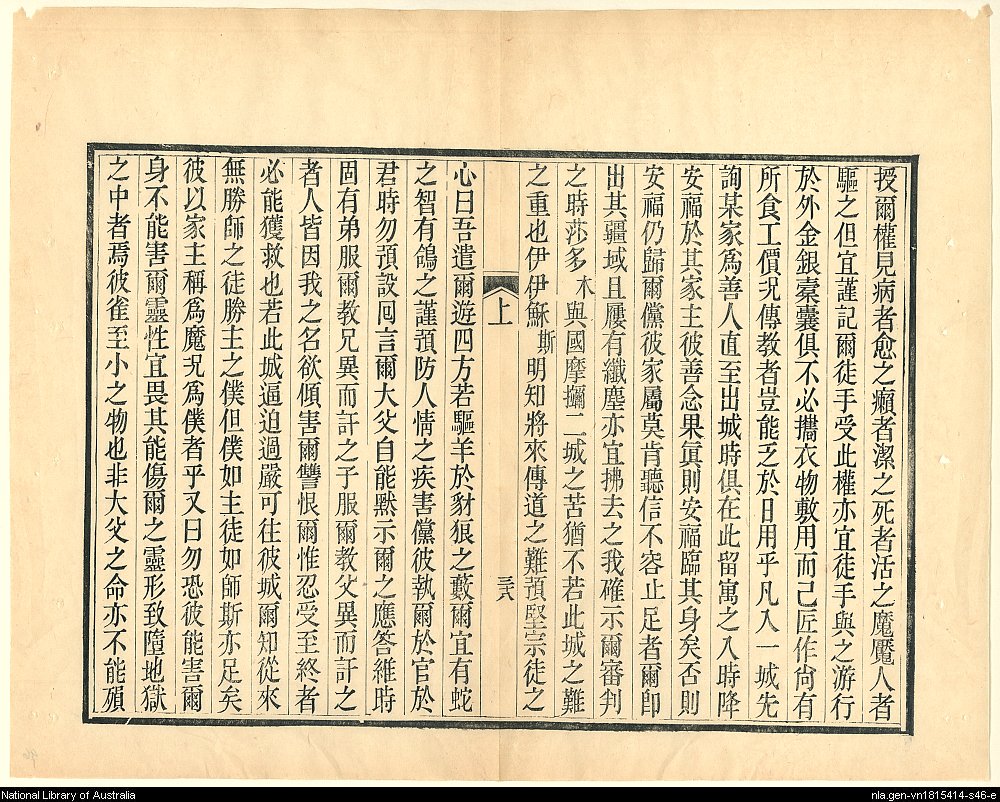 授爾權見病者愈之癩者潔之死者活之魔魘人者
驅之但宜謹記爾徒手受此權亦宜徒手與之游行
於外金銀橐囊俱不必攜衣物敷用而已匠作尙有
所食工價况傳教者豈能乏於日用乎凡入一城先
詢某家爲善人直至出城時俱在此留寓之入時降
安福於其家主彼善念果眞則安福臨其身矣否則
安福仍歸爾儻彼家屬莫肯聽信不容止足者爾卽
出其疆域且屨有纖塵亦宜拂去之我確示爾審判
之時莎多木與國摩擸二城之苦猶不若此城之難
之重也伊伊穌斯明知將來傳道之難預堅宗徒之
上
三八
心曰吾遣爾游四方若驅羊於豺狼之藪爾宜有蛇
之智有鴿之謹預防人情之疾害儻彼執爾於官於
君時勿預設囘言爾大父自能默示爾之應答維時
固有弟服爾教兄異而訐之子服爾教父異而訐之
者人皆因我之名欲傾害爾讐恨爾惟忍受至終者
必能獲救也若此城逼迫過嚴可往彼城爾知從來
無勝師之徒勝主之僕但僕如主徒如師斯亦足矣
彼以家主稱爲魔况爲僕者乎又曰勿恐彼能害爾
身不能害爾靈性宜畏其能傷爾之靈形致墮地獄
之中者焉彼雀至小之物也非大父之命亦不能殞
National Library of Australia
nla.gen-vn1815414-s46-e